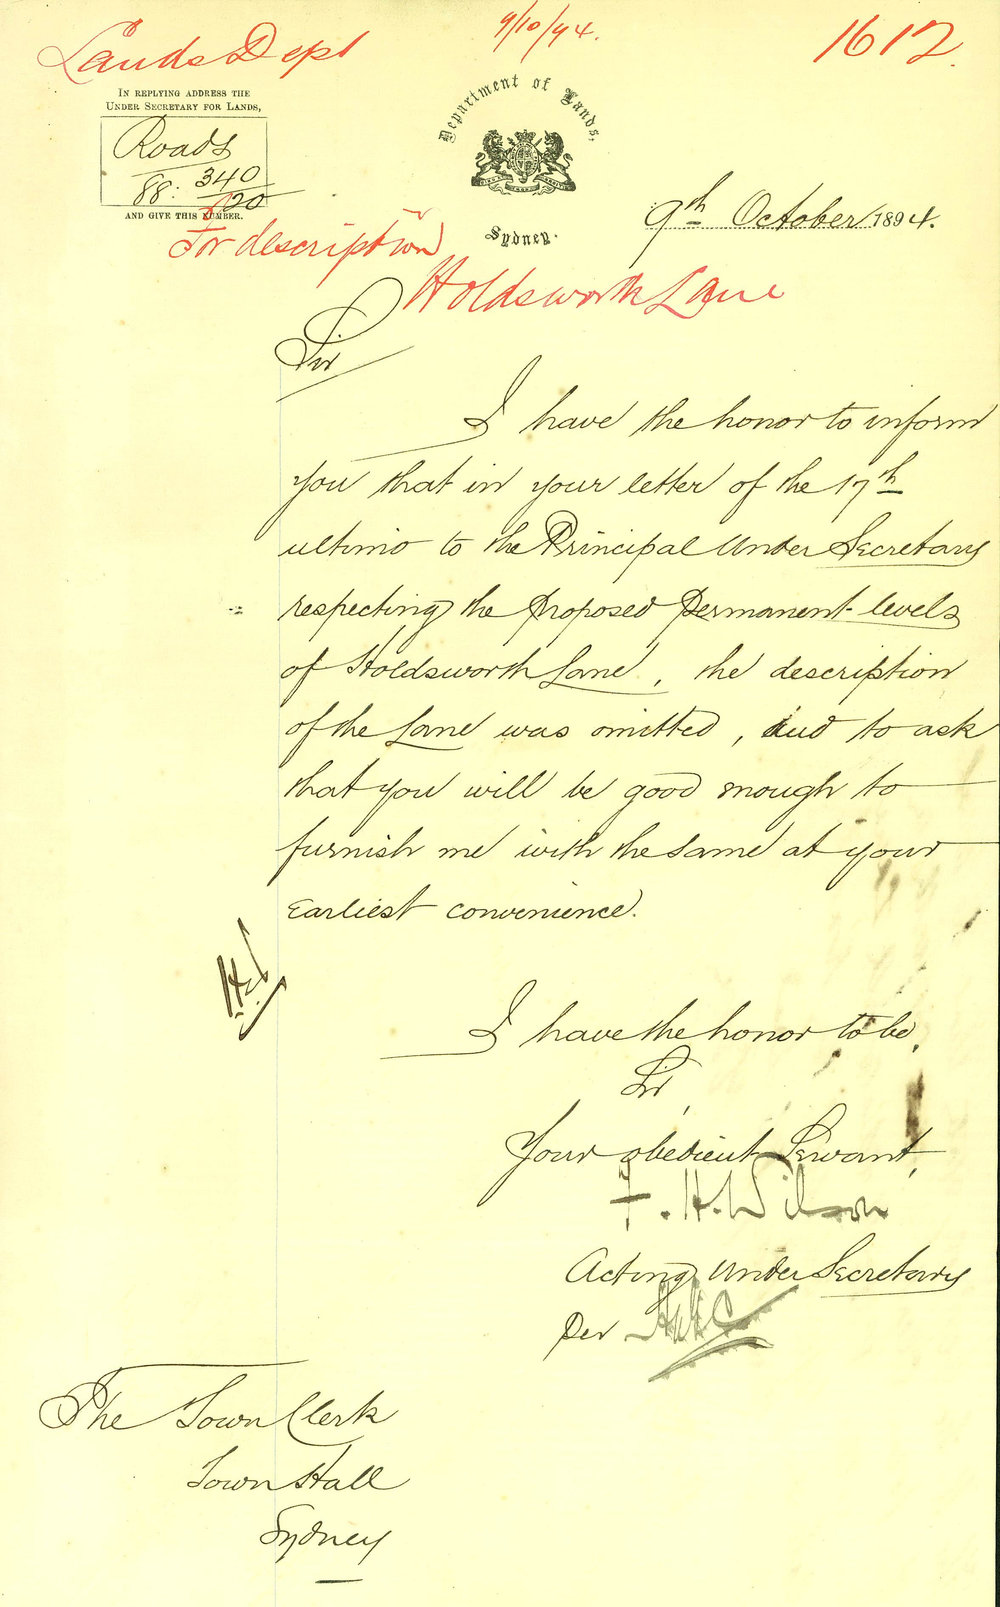 Lands Dept
9/10/94.
1612.
IN REPLYING ADDRESS THE
UNDER SECRETARY FOR LANDS,
Roads
88: 340/20
AND GIVE THIS NUMBER.
Department of Lands,
Sydney.
9th October 1894.
For description
Holdsworth Lane
Sir
I have the honor to inform
you that in your letter of the 17th
ultimo to the Principal Under Secretary
respecting the proposed permanent levels
of Holdsworth Lane, the description
of the Lane was omitted, and to ask
that you will be good enough to
furnish me with the same at your
earliest convenience.
I have the honor to be,
Sir,
Your obedient Servant,
F. H. Wilson
Acting Under Secretary
Per
The Town Clerk
Town Hall
Sydney